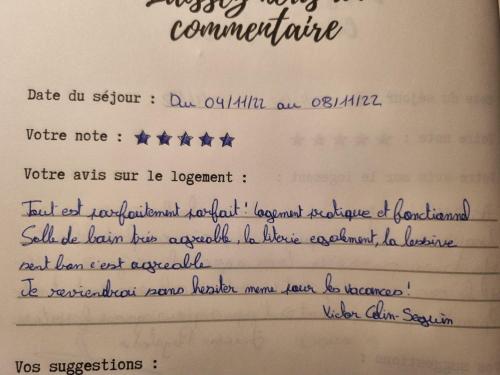 Laissez nous un
commentaire
Date du séjour : Du 04/11/22 au 08/11/22
Votre note : ★★★★★
Votre avis sur le logement :
Tout est parfaitement parfait ! logement pratique et fonctionnel
Salle de bain très agreable, la literie egalement, la lessive
sent bon c'est agreable
Je reviendrai sans hesiter meme pour les vacances !
Victor Colin-Seguin
Vos suggestions :